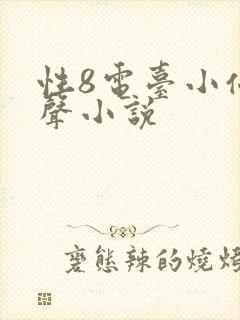 性8電臺小
聲小說
變態辣的燒烤